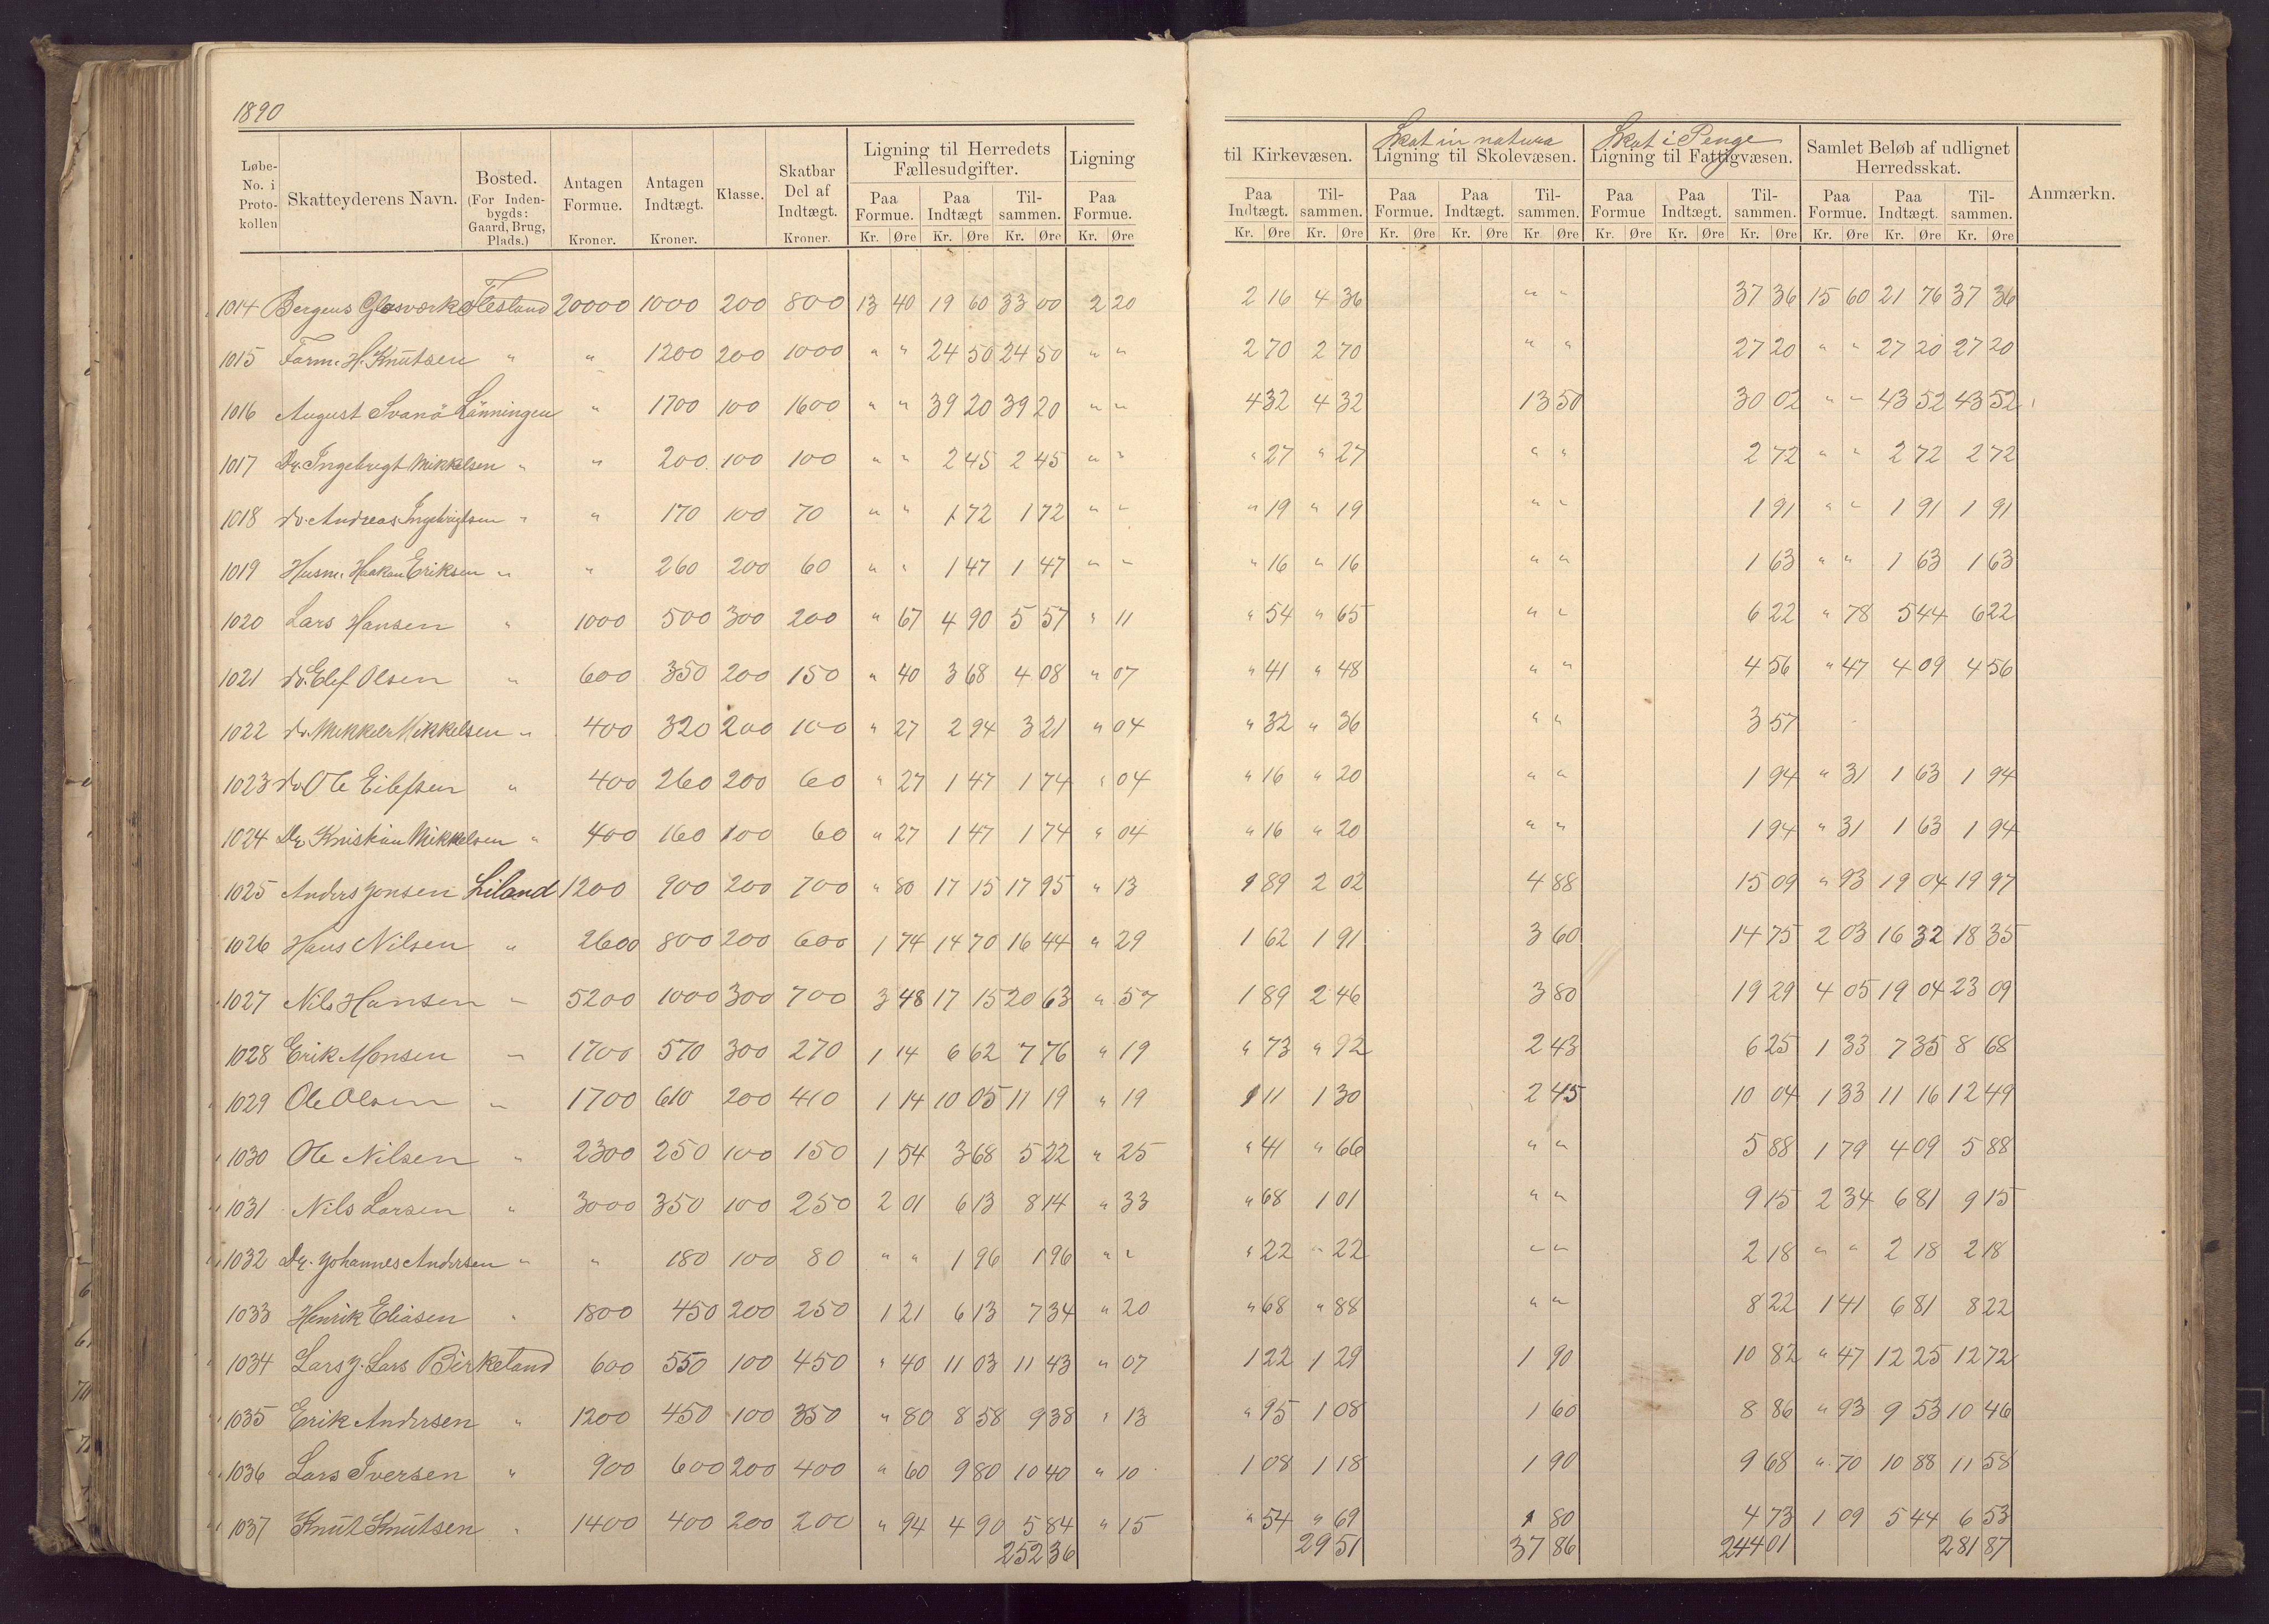 1890
Løbe-No. i Proto-kollen | Skatteyderens Navn. | Bosted. (For Inden-bygds: Gaard, Brug, Plads.) | Antagen Formue. Kroner. | Antagen Indtægt. Kroner. | Klasse. | Skatbar Del af Indtægt. Kroner. | Ligning til Herredets Fællesudgifter. Paa Formue. Kr. Øre | Paa Indtægt Kr. Øre | Til-sammen. Kr. Øre | Ligning Paa Formue. Kr. Øre | til Kirkevæsen. Paa Indtægt. Kr. Øre | Til-sammen. Kr. Øre | Skat in natura Ligning til Skolevæsen. Paa Formue. Kr. Øre | Paa Indtægt. Kr. Øre | Til-sammen. Kr. Øre | Skat i Penge Ligning til Fattigvæsen. Paa Formue Kr. Øre | Paa Indtægt. Kr. Øre | Til-sammen. Kr. Øre | Samlet Beløb af udlignet Herredsskat. Paa Formue. Kr. Øre | Paa Indtægt. Kr. Øre | Til-sammen. Kr. Øre | Anmærkn.
1014 Bergens Glasværk Flesland 20000 1000 200 800 13 40 19 60 33 00 2 20 2 16 4 36 " " 37 36 15 60 21 76 37 36
1015 Form. H. Knutsen " " 1200 200 1000 " " 24 50 24 50 " " 2 70 2 70 " " 27 20 " " 27 20 27 20
1016 August Svanö Lönningen " 1700 100 1600 " " 39 20 39 20 " " 4 32 4 32 13 50 30 02 " " 43 52 43 52
1017 Dr. Ingebrigt Mikkelsen " " 200 100 100 " " 2 45 2 45 " " " 27 " 27 " " 2 72 " " 2 72 2 72
1018 do. Andreas Ingebrigtsen " " 170 100 70 " " 1 72 1 72 " " " 19 " 19 " " 1 91 " " 1 91 1 91
1019 Husm. Haakon Eriksen " " 260 200 60 " " 1 47 1 47 " " " 16 " 16 " " 1 63 " " 1 63 1 63
1020 Lars Hansen " 1000 500 300 200 " 67 4 90 5 57 " 11 " 54 " 65 " " 6 22 " 78 5 44 6 22
1021 do. Elef Olsen " 600 350 200 150 " 40 3 68 4 08 " 07 " 41 " 48 " " 4 56 " 47 4 09 4 56
1022 do. Mikkel Mikkelsen " 400 320 200 100 " 27 2 94 3 21 " 04 " 32 " 36 " " 3 57
1023 do. Ole Eilefsen " 400 260 200 60 " 27 1 47 1 74 " 04 " 16 " 20 " " 1 94 " 31 1 63 1 94
1024 Dr. Kristian Mikkelsen " 400 160 100 60 " 27 1 47 1 74 " 04 " 16 " 20 " " 1 94 " 31 1 63 1 94
1025 Anders Jonsen Liland 1200 900 200 700 " 80 17 15 17 95 " 13 1 89 2 02 4 88 15 09 " 93 19 04 19 97
1026 Hans Nilsen " 2600 800 200 600 1 74 14 70 16 44 " 29 1 62 1 91 3 60 14 75 2 03 16 32 18 35
1027 Nils Hansen " 5200 1000 300 700 3 48 17 15 20 63 " 57 1 89 2 46 3 80 19 29 4 05 19 04 23 09
1028 Erik Monsen " 1700 570 300 270 1 14 6 62 7 76 " 19 " 73 " 92 2 43 6 25 1 33 7 35 8 68
1029 Ole Olsen " 1700 610 200 410 1 14 10 05 11 19 " 19 1 11 1 30 2 45 10 04 1 33 11 16 12 49
1030 Ole Nilsen " 2300 250 100 150 1 54 3 68 5 22 " 25 " 41 " 66 " " 5 88 1 79 4 09 5 88
1031 Nils Larsen " 3000 350 100 250 2 01 6 13 8 14 " 33 " 68 1 01 " " 9 15 2 34 6 81 9 15
1032 Dr. Johannes Andersen " " 180 100 80 " " 1 96 1 96 " " " 22 " 22 " " 2 18 " " 2 18 2 18
1033 Henrik Eliasen " 1800 450 200 250 1 21 6 13 7 34 " 20 " 68 " 88 " " 8 22 1 41 6 81 8 22
1034 Lars J. Lars Birkeland 600 550 100 450 " 40 11 03 11 43 " 07 1 22 1 29 1 90 10 82 " 47 12 25 12 72
1035 Erik Andersen " 1200 450 100 350 " 80 8 58 9 38 " 13 " 95 1 08 1 60 8 86 " 93 9 53 10 46
1036 Lars Iversen " 900 600 200 400 " 60 9 80 10 40 " 10 1 08 1 18 1 90 9 68 " 70 10 88 11 58
1037 Knut Knutsen " 1400 400 200 200 " 94 4 90 5 84 " 15 " 54 " 69 1 80 4 73 1 09 5 44 6 53
252 36 29 51 37 86 244 01 281 87